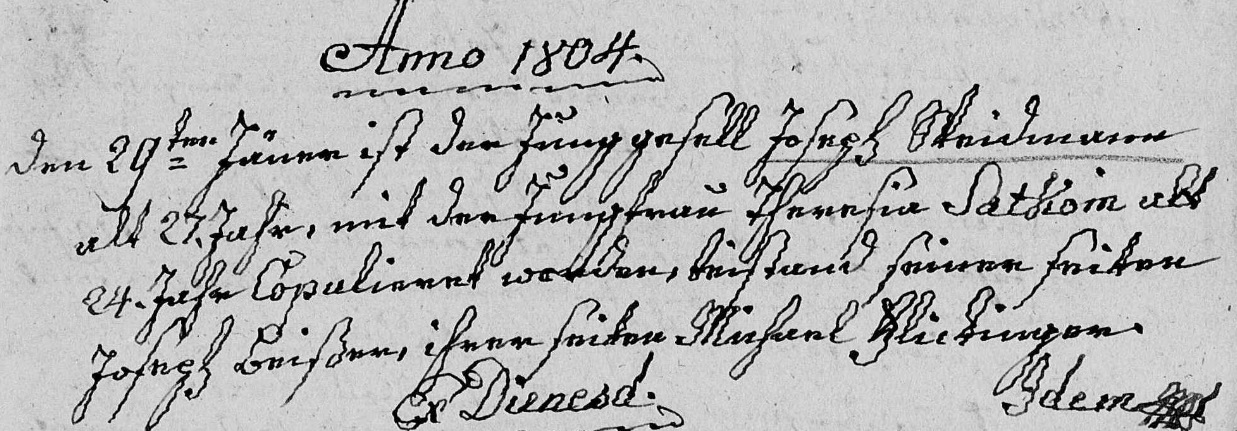 Anno 1804.
den 29ten Jäner ist der Junggesell Joseph Weidmann
alt 27. Jahr, mit der Jungfrau Theresia Sathoin alt
24. Jahr Copulieret worden, beistand seiner seiten
Joseph Beißer, ihrer seiten Michael Flickinger.
Ex Dienesd. Idem